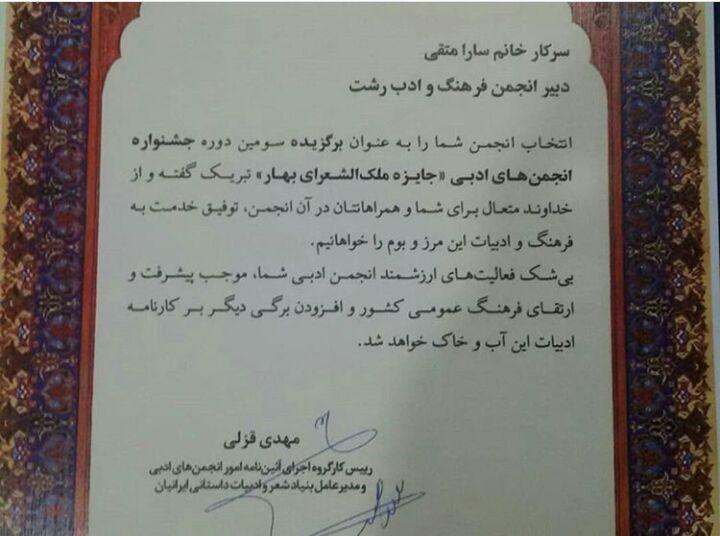 سرکار خانم سارا متقی
دبیر انجمن فرهنگ و ادب رشت
انتخاب انجمن شما را به عنوان برگزیده سومین دوره جشنواره
انجمن‌های ادبی «جایزه ملک‌الشعرای بهار» تبریک گفته و از
خداوند متعال برای شما و همراهانتان در آن انجمن، توفیق خدمت به
فرهنگ و ادبیات این مرز و بوم را خواهانیم.
بی‌شک فعالیت‌های ارزشمند انجمن ادبی شما، موجب پیشرفت و
ارتقای فرهنگ عمومی کشور و افزودن برگی دیگر بر کارنامه
ادبیات این آب و خاک خواهد شد.
مهدی قزلی
رییس کارگروه اجرای آئین‌نامه امور انجمن‌های ادبی
و مدیرعامل بنیاد شعر و ادبیات داستانی ایرانیان